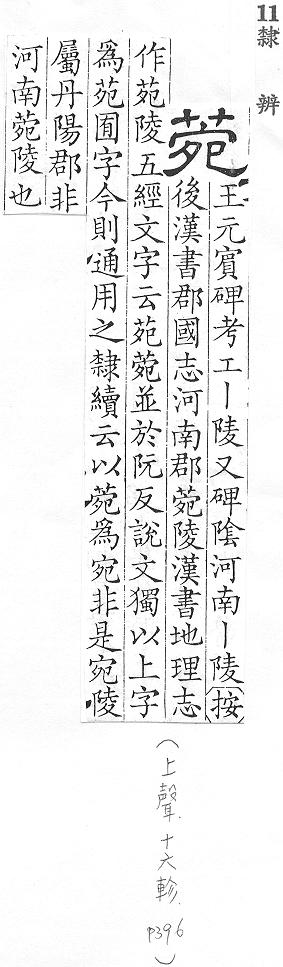 11 隸辨
菀
王元賓碑考工丨陵又碑陰河南丨陵按
後漢書郡國志河南郡菀陵漢書地理志
作苑陵五經文字云苑菀並於阮反說文獨以上字
爲苑囿字今則通用之隸續云以菀爲宛非是宛陵
屬丹陽郡非
河南菀陵也
(上聲.十六軫. p396)